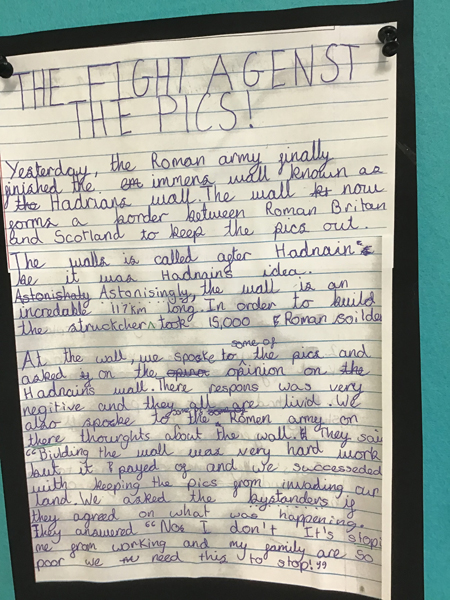 THE FIGHT AGENST
THE PICS!
Yesterday, the Roman army finally
finished the immens wall known as
the Hadrians wall. The wall now
forms a border between Roman Britan
and Scotland to keep the pics out.
The walls is called after Hadnain
be it was Hadnains idea.
Astonishaly Astonisingly, the wall is an
incredable 117km long. In order to build
the struckcher it took 15,000 Roman soilder
At the wall, we spoke to some of the pics and
asked on the opinion on the
Hadnains wall. There respons was very
negitive and they all are livid. We
also spoke to some of the Romen army on
there thourghts about the wall. They say
"Biulding the wall was very hard work
but it payed of and we successeded
with keeping the pics from invading our
land. We asked the bystanders if
they agreed on what was happening.
They answered "No I don't It's stopi
me from working and my family are so
poor we need this to stop!"